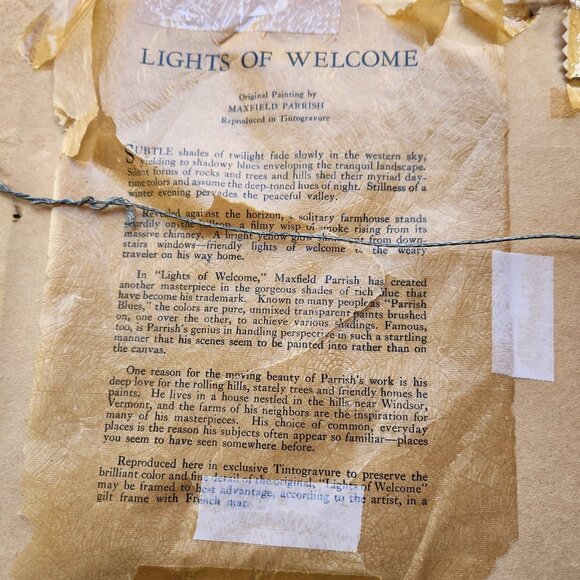 LIGHTS OF WELCOME
Original Painting by
MAXFIELD PARRISH
Reproduced in Tintogravure
SUBTLE shades of twilight fade slowly in the western sky,
yielding to shadowy blues enveloping the tranquil landscape.
Silent forms of rocks and trees and hills shed their myriad day-
time colors and assume the deep-toned hues of night. Stillness of a
winter evening pervades the peaceful valley.
Revealed against the horizon, a solitary farmhouse stands
sturdily on the hilltop, a filmy wisp of smoke rising from its
massive chimney. A bright yellow glow from down-
stairs windows—friendly lights of welcome to the weary
traveler on his way home.
In "Lights of Welcome," Maxfield Parrish has created
another masterpiece in the gorgeous shades of rich blue that
have become his trademark. Known to many people as "Parrish
Blues," the colors are pure, unmixed transparent paints brushed
on, one over the other, to achieve various shadings. Famous,
too, is Parrish's genius in handling perspective in such a startling
manner that his scenes seem to be painted into rather than on
the canvas.
One reason for the moving beauty of Parrish's work is his
deep love for the rolling hills, stately trees and friendly homes he
paints. He lives in a house nestled in the hills near Windsor,
Vermont, and the farms of his neighbors are the inspiration for
many of his masterpieces. His choice of common, everyday
places is the reason his subjects often appear so familiar—places
you seem to have seen somewhere before.
Reproduced here in exclusive Tintogravure to preserve the
brilliant color and fine detail of the original, "Lights of Welcome"
may be framed to best advantage, according to the artist, in a
gilt frame with French mat.